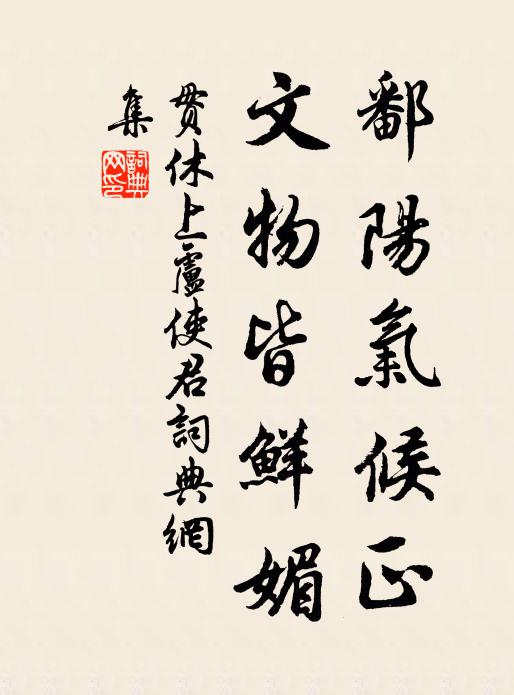 鄱陽氣候正
文物皆鮮媚
貫休上盧使君詞典網
集
詞典
网印